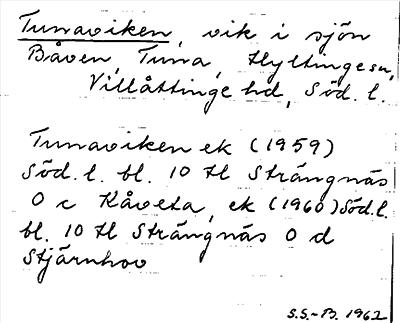 Tunaviken, vik i sjön
Båven, Tuna, Hyltinge sn,
Villåttinge hd, Söd. l.
Tunaviken ek (1959)
Söd. l. bl. 10 tl Strängnäs
O c Kåveta, ek (1960) Söd. l.
bl. 10 tl Strängnäs O d
Stjärnhov
S.S.-B. 1962